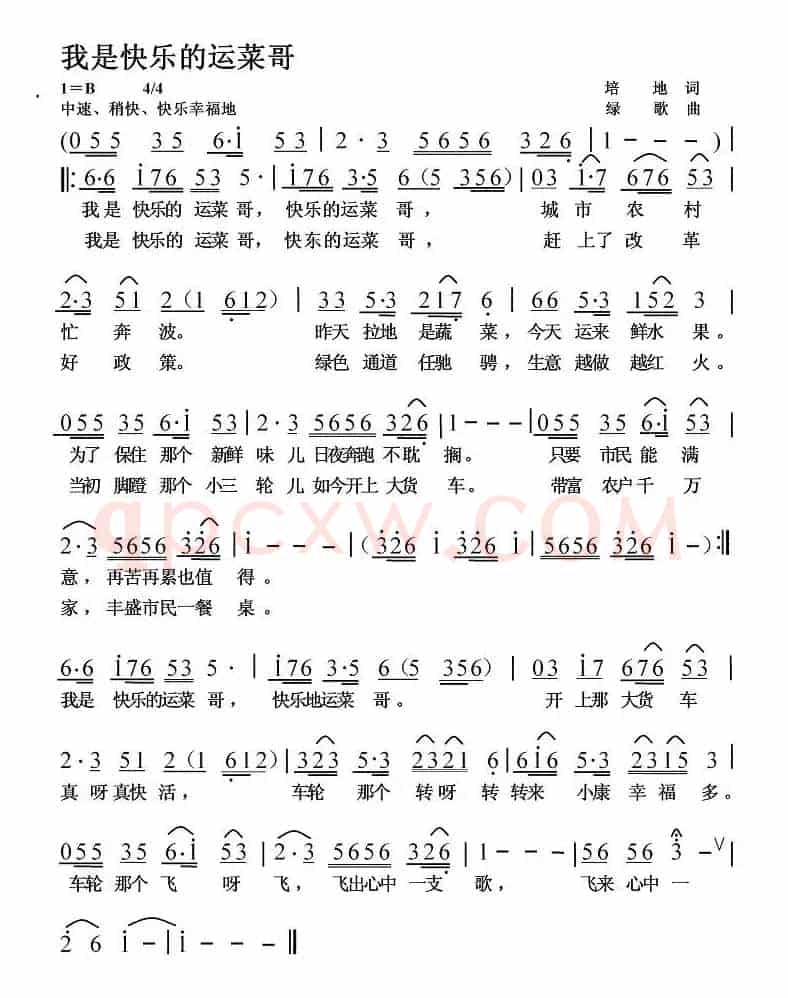 我是快乐的运菜哥
1＝B 4/4 培 地 词
中速、稍快、快乐幸福地 绿 歌 曲
(055 35 6·i 53 | 2·3 5656 326 | 1 - - - |
‖: 6·6 i76 53 5· | i76 3·5 6 (5 356) | 03 i·7 676 53 |
我是 快乐的 运菜 哥， 快乐的运菜 哥， 城 市 农 村
我是 快乐的 运菜 哥， 快东的运菜 哥， 赶 上了 改 革
2·3 51 2 (1 612) | 33 5·3 217 6 | 66 5·3 152 3 |
忙 奔 波。 昨天 拉地 是蔬 菜，今天 运来 鲜水 果。
好 政 策。 绿色 通道 任驰 骋，生意 越做 越红 火。
055 35 6·i 53 | 2·3 5656 326 | 1 - - - | 055 35 6·i 53 |
为了 保住 那个 新鲜 味 儿 日夜奔跑 不耽 搁。 只要 市民 能 满
当初 脚蹬 那个 小三 轮 儿 如今开上 大货 车。 带富 农户 千 万
qpcxw.COM
2·3 5656 326 | i - - - | (326 i 326 i | 326 326 i -) :‖
意，再苦再累也值 得。
家，丰盛市民一餐 桌。
6·6 i76 53 5· | i76 3·5 6 (5 356) | 03 i7 676 53 |
我是 快乐的运菜 哥， 快乐地运菜 哥。 开 上那 大货 车
2·3 51 2 (1 612) | 323 5·3 2321 6 | 6i6 5·3 2315 3 |
真 呀真快 活， 车轮 那个 转呀 转 转来 小康 幸福 多。
055 35 6·i 53 | 2·3 5656 326 | 1 - - - | 56 56 3 - ∨ |
车轮 那个 飞 呀 飞， 飞出心中 一支 歌， 飞来 心中 一
2 6 i - | i - ‖